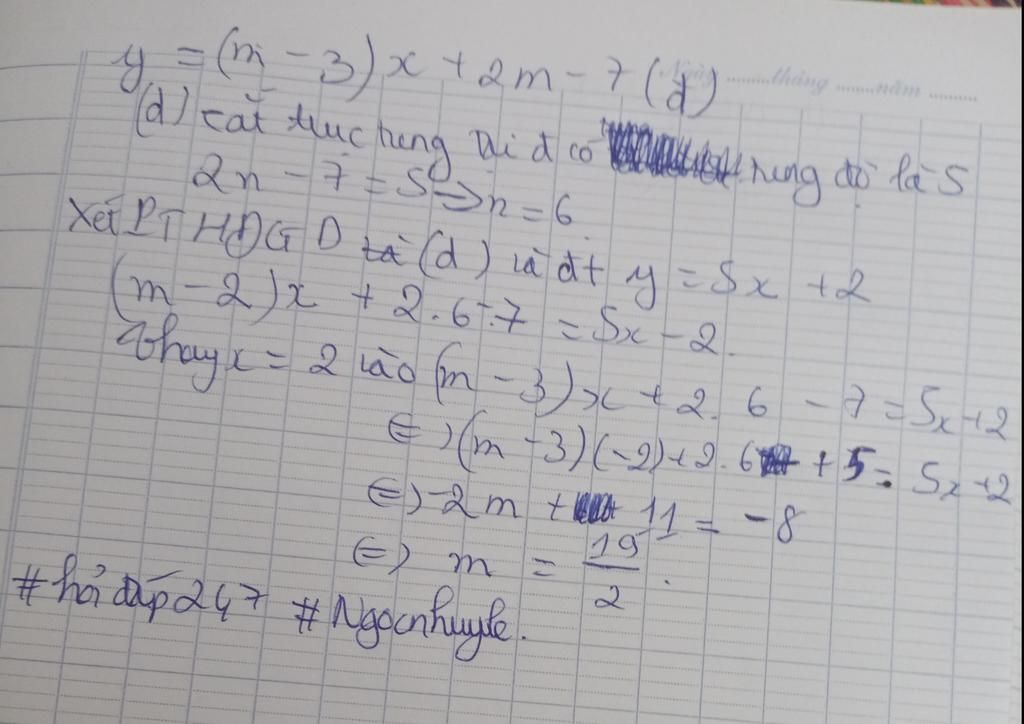 y = (m - 3)x + 2m - 7 (d)
Ngày ......... tháng ........ năm ..........
(d) cắt trục tung tại đ có tung độ là 5
2n - 7 = 5 => n = 6.
Xét PT HĐGĐ (d) và đt y = 5x + 2
(m - 2)x + 2.6 - 7 = 5x - 2.
Thay x = 2 vào (m - 3)x + 2. 6 - 7 = 5x + 2
<=> (m - 3)(-2) + 2. 6 + 5 = 5x + 2
<=> -2m + 11 = -8
<=> m = 19/2.
#hỏi đáp247 #Ngocnhuyle.